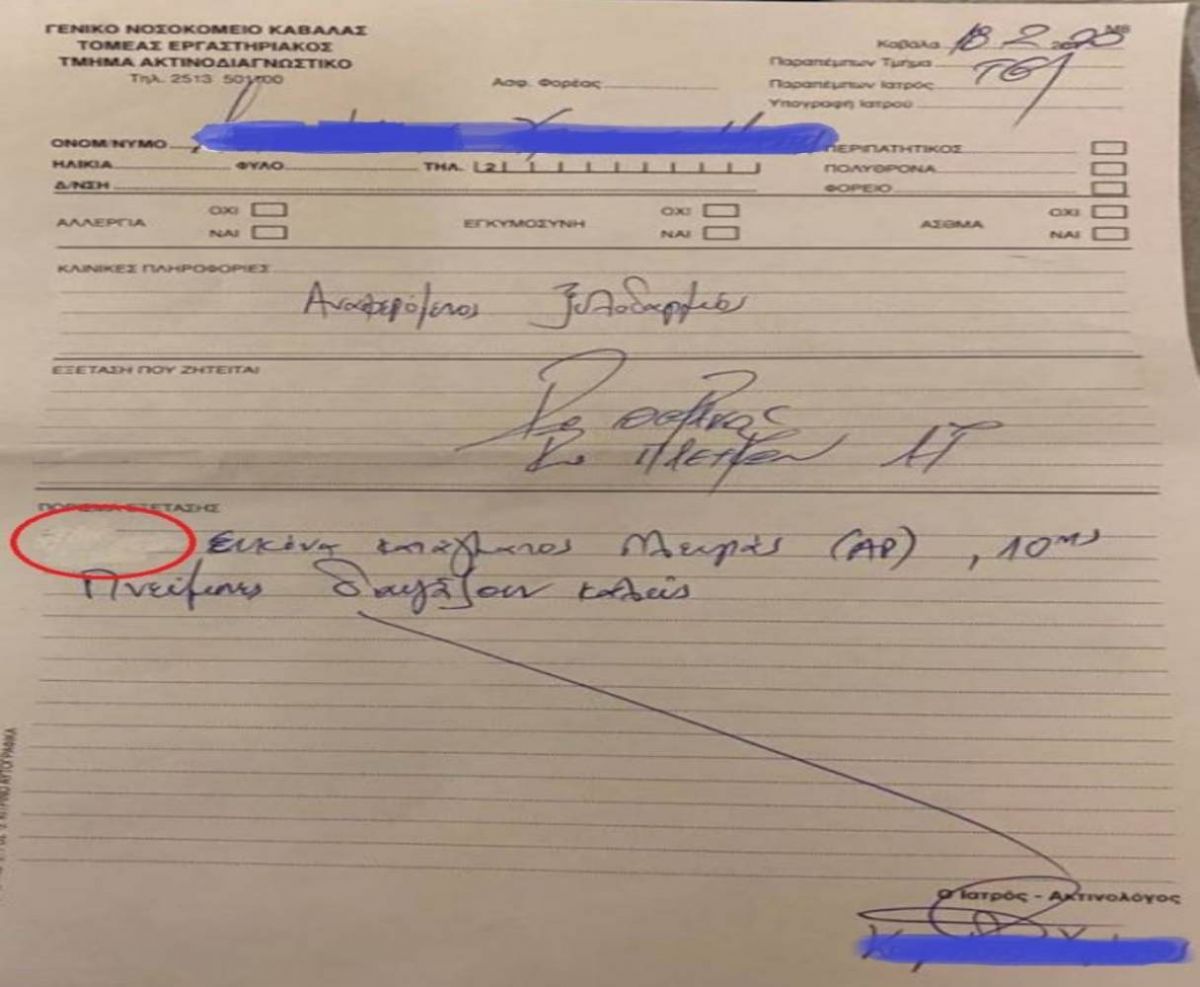 ΓΕΝΙΚΟ ΝΟΣΟΚΟΜΕΙΟ ΚΑΒΑΛΑΣ
ΤΟΜΕΑΣ ΕΡΓΑΣΤΗΡΙΑΚΟΣ
ΤΜΗΜΑ ΑΚΤΙΝΟΔΙΑΓΝΩΣΤΙΚΟ
Τηλ. 2513 501100
Ασφ. Φορέας
Καβάλα 18 2 2023
Παραπέμπων Τμήμα ΤΕΠ
Παραπέμπων Ιατρός
Υπογραφή Ιατρού
ΟΝΟΜ/ΝΥΜΟ
ΗΛΙΚΙΑ ΦΥΛΟ ΤΗΛ. 2
Δ/ΝΣΗ
ΠΕΡΙΠΑΤΗΤΙΚΟΣ
ΠΟΛΥΘΡΟΝΑ
ΦΟΡΕΙΟ
ΑΛΛΕΡΓΙΑ ΟΧΙ ΝΑΙ
ΕΓΚΥΜΟΣΥΝΗ ΟΧΙ ΝΑΙ
ΑΣΘΜΑ ΟΧΙ ΝΑΙ
ΚΛΙΝΙΚΕΣ ΠΛΗΡΟΦΟΡΙΕΣ
Αναφερόμενος Ξυλοδαρμός
ΕΞΕΤΑΣΗ ΠΟΥ ΖΗΤΕΙΤΑΙ
Ro θώρακος
Ro πλευρών ΑΡ
ΠΟΡΙΣΜΑ ΕΞΕΤΑΣΗΣ
Εικόνα κατάγματος πλευράς (ΑΡ), 10ης
Πνεύμονες διαυγάζουν καλώς
Ο Ιατρός - Ακτινολόγος